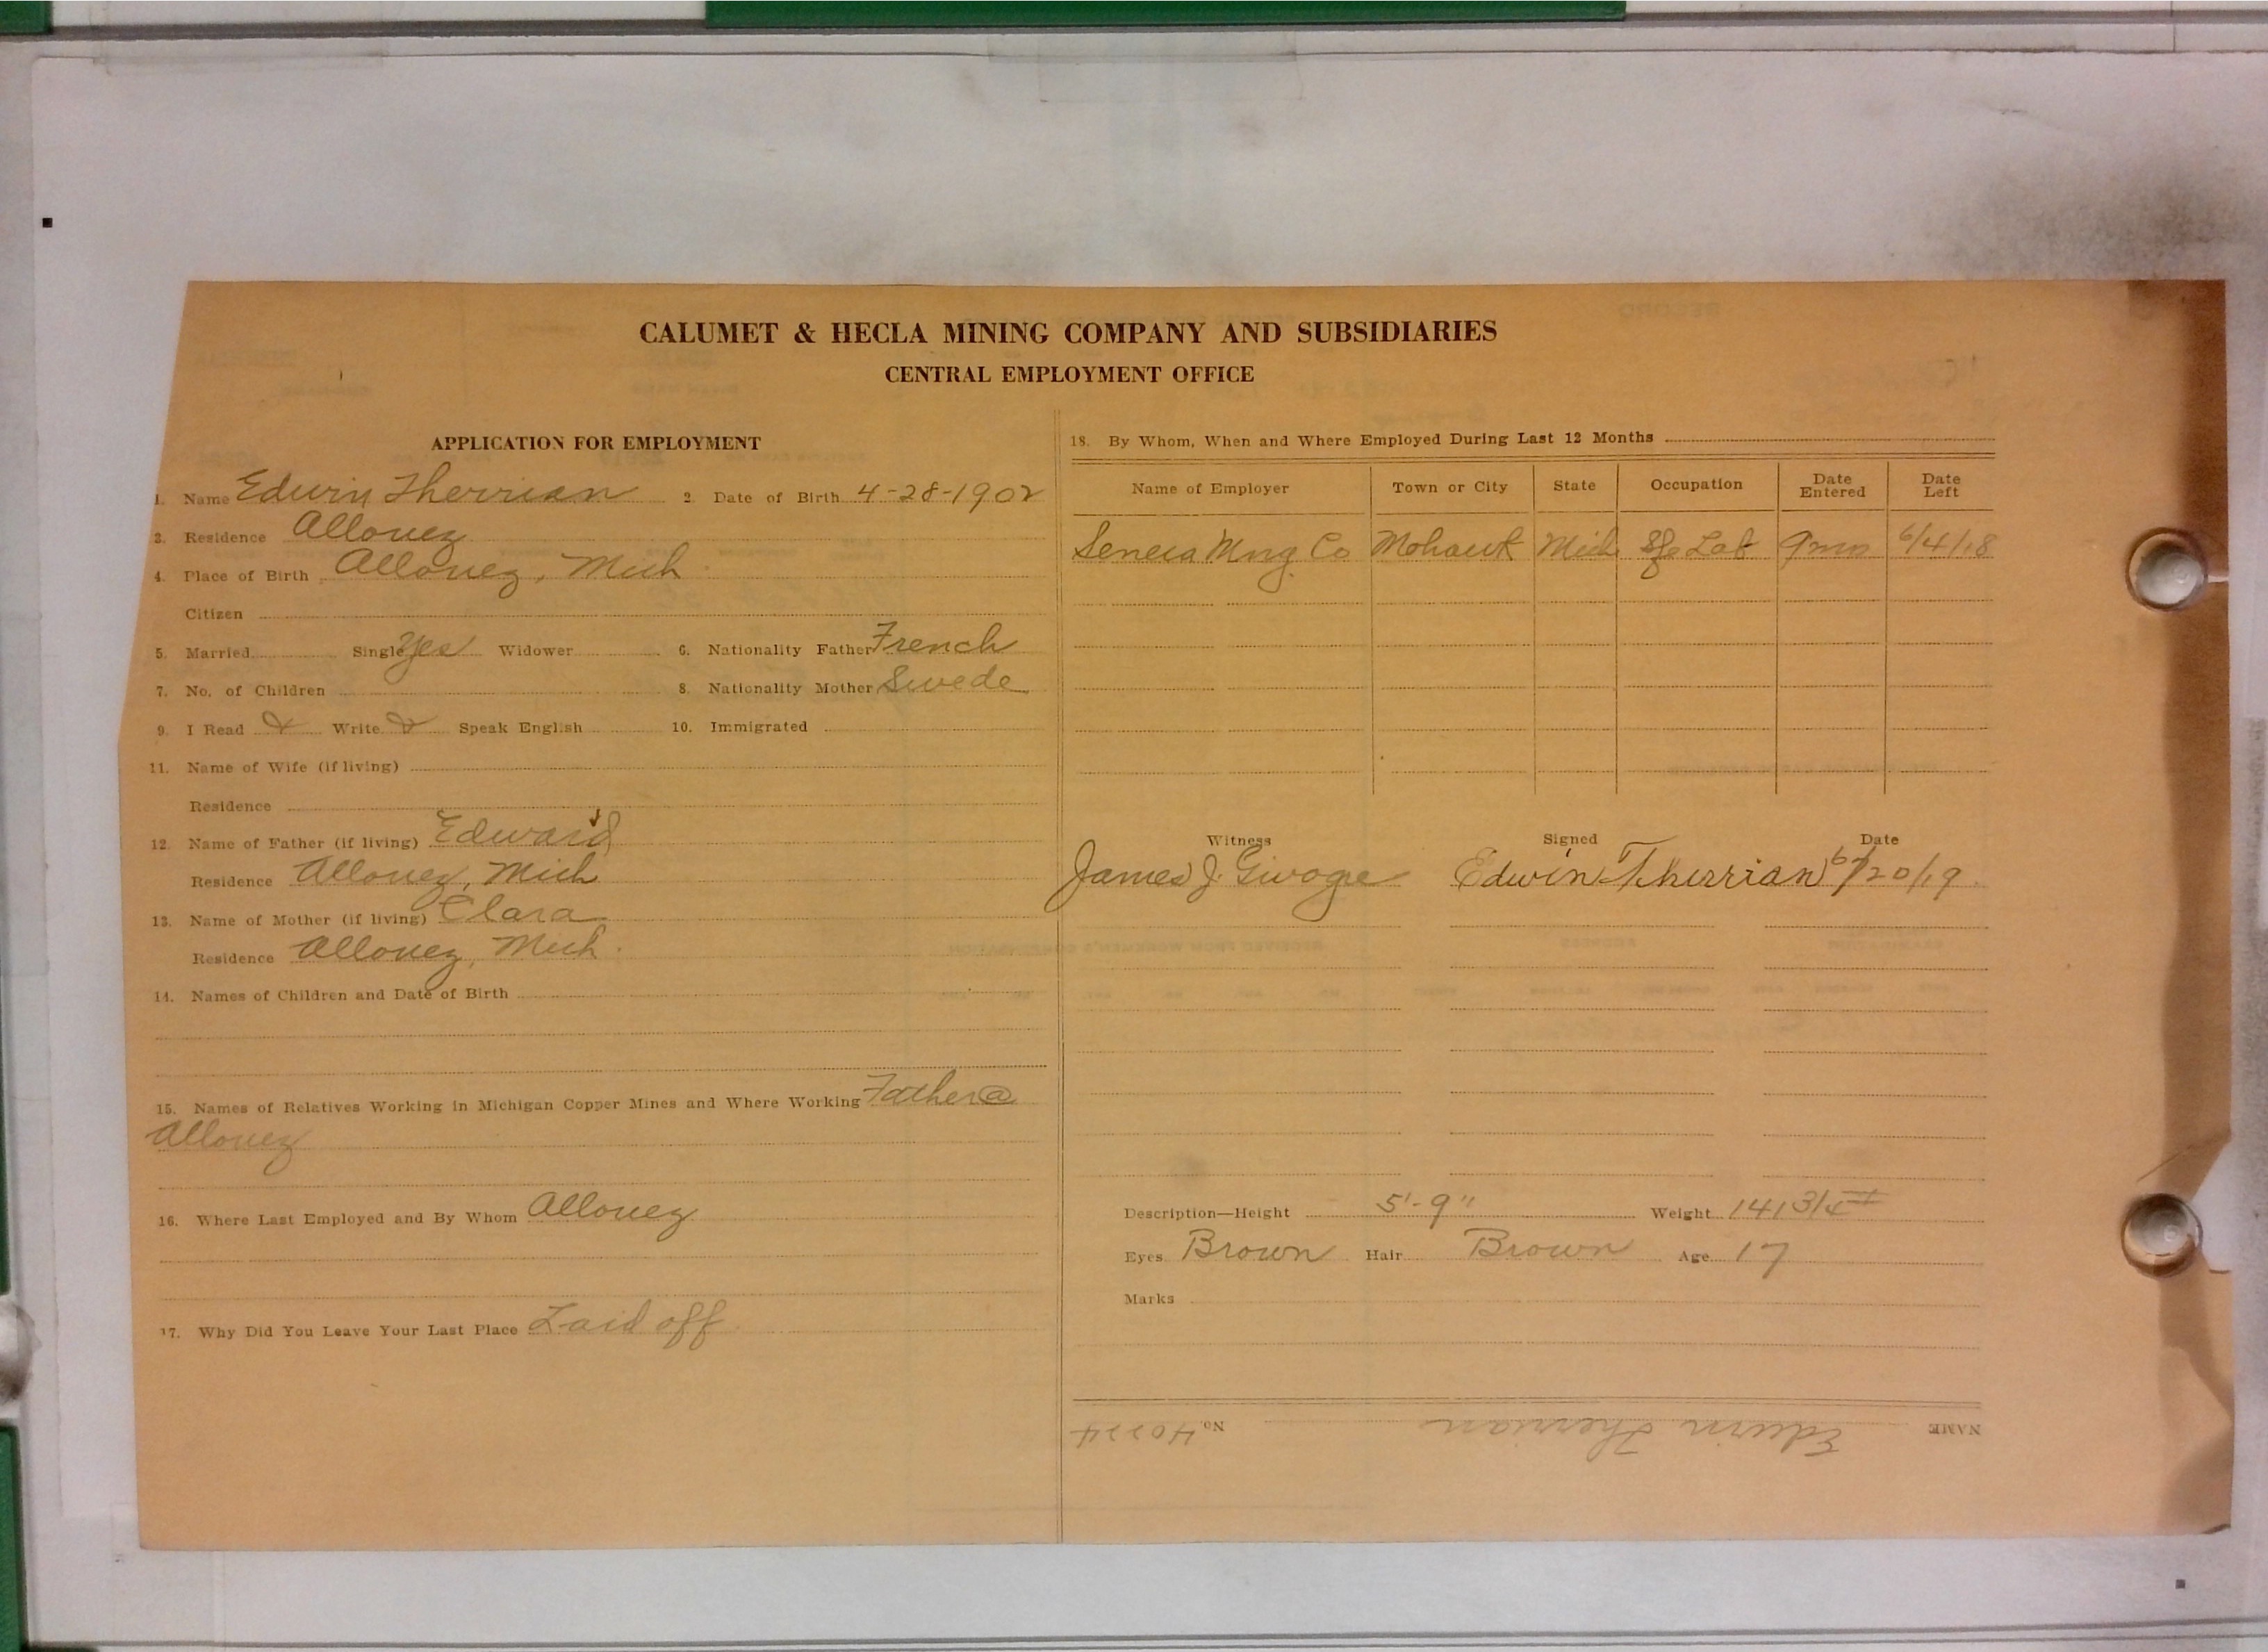 CALUMET & HECLA MINING COMPANY AND SUBSIDIARIES
CENTRAL EMPLOYMENT OFFICE
APPLICATION FOR EMPLOYMENT
1. Name Edwin Therrian 2. Date of Birth 4-28-1902
3. Residence Allouez
4. Place of Birth Allouez, Mich
Citizen
5. Married Single Yes Widower 6. Nationality Father French
7. No. of Children 8. Nationality Mother Swede
9. I Read Write Speak English 10. Immigrated
11. Name of Wife (if living)
Residence
12. Name of Father (if living) Edward
Residence Allouez, Mich
13. Name of Mother (if living) Clara
Residence Allouez, Mich.
14. Names of Children and Date of Birth
15. Names of Relatives Working in Michigan Copper Mines and Where Working Father @
Allouez
16. Where Last Employed and By Whom Allouez
17. Why Did You Leave Your Last Place Laid off
18. By Whom, When and Where Employed During Last 12 Months
Name of Employer Town or City State Occupation Date Entered Date Left
Seneca Mng. Co Mohawk Mich Sfc Lab 9mo 6/4/18
Witness Signed Date
James J. Edwin Therrian 6/20/19.
Description—Height 5'-9" Weight 141 3/4 #
Eyes Brown Hair Brown Age 17
Marks
NAME Edwin Therrian No. 40224